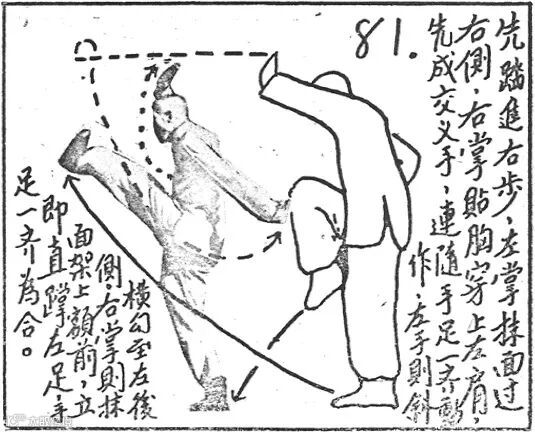 81.
先踏進右步，左掌抹面過
右側，右掌貼胸穿上左肩，
先成交叉手，連隨手足一齊動
作，左手則斜
橫勾至左後
側，右掌則抹
面架上額前，立
即直蹬左足，手
足一齊為合。